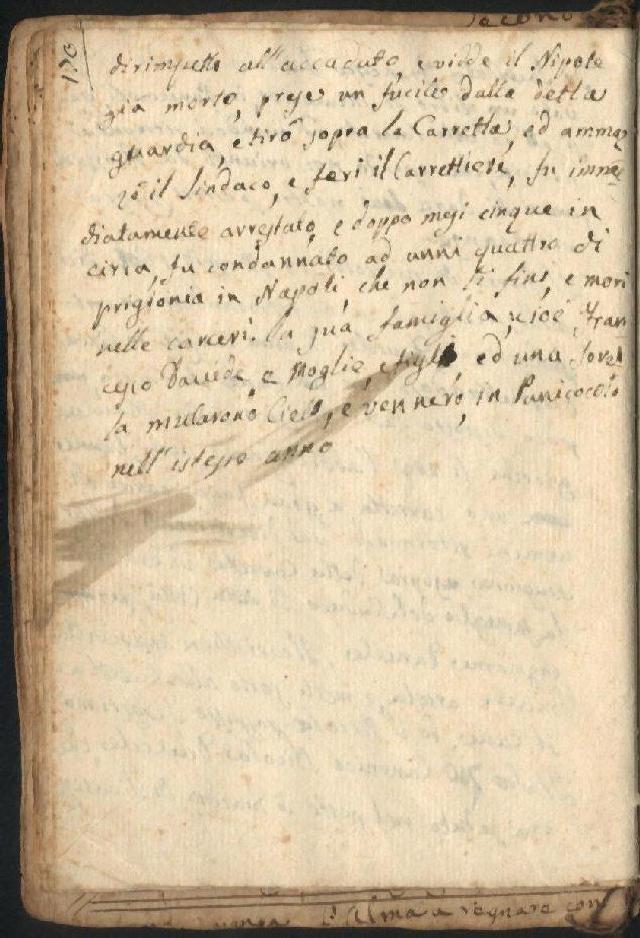 Secondo
120
dirimpetto all'accaduto, e vidde il Nipote
già morto, prese un fucile dalla detta
guardia, e tirò sopra la Carretta, ed ammaz
zò il Sindaco, e ferì il Carrettiere, fu imme
diatamente arrestato, e doppo mesi cinque in
circa, fu condannato ad anni quattro di
prigionia in Napoli, che non li finì, e morì
nelle carceri. la sua famiglia, cioè, Fran
cesco Davede, e Moglie, e figli, ed una Sorel
la mutarono Cielo, e vennero, in Panicocolo
nell'istesso anno
l'Alma a regnare con